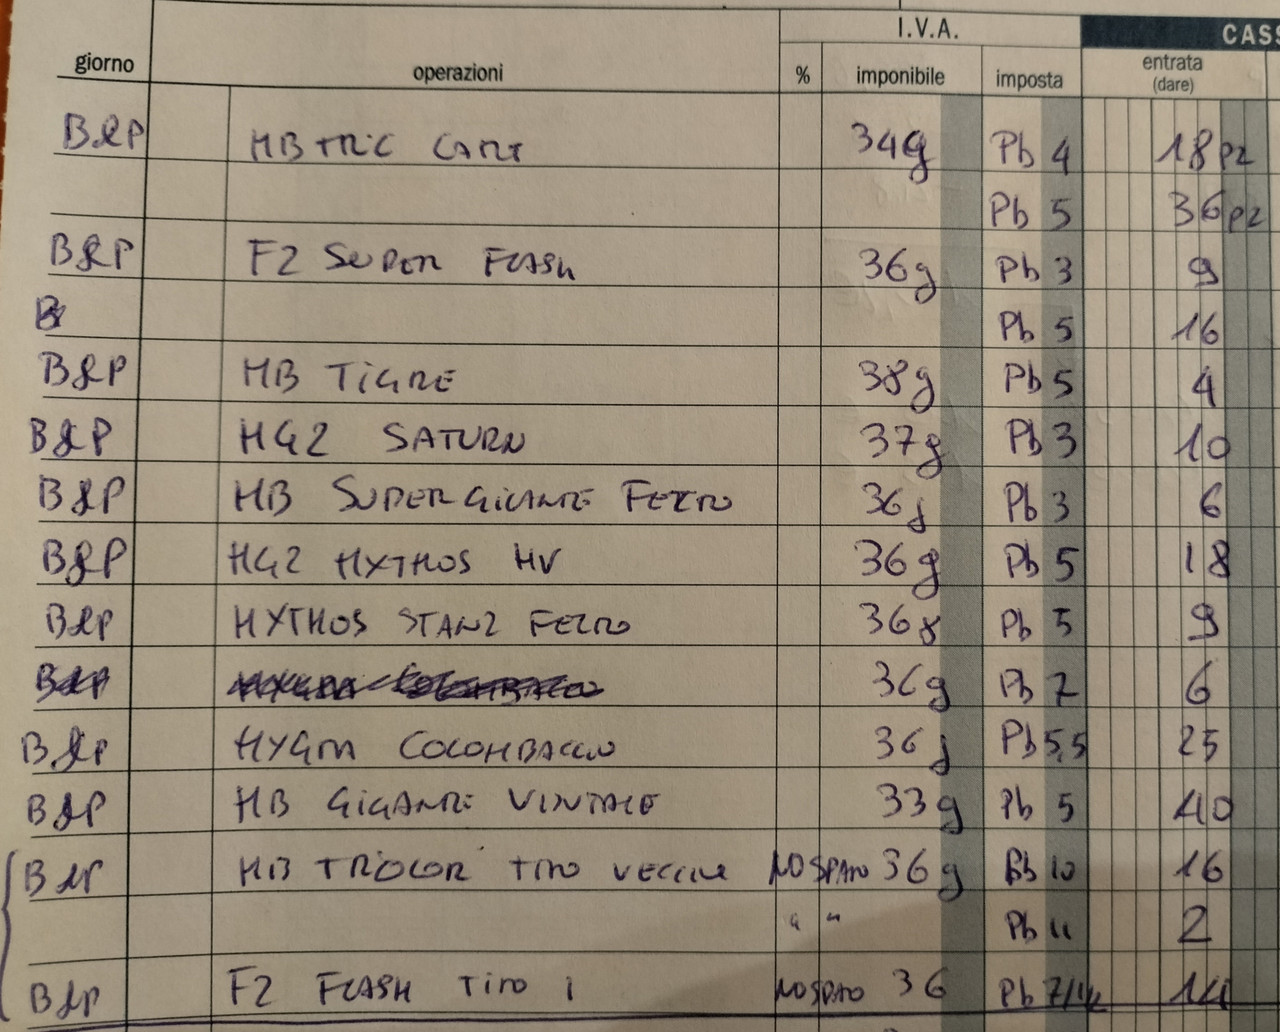 I.V.A. CASS
giorno operazioni % imponibile imposta entrata (dare)
B&P HB TRIC CART 34g Pb 4 18 pz
Pb 5 36 pz
B&P F2 SUPER FLASH 36g Pb 3 9
B Pb 5 16
B&P HB TIGRE 38g Pb 5 4
B&P HG2 SATURN 37g Pb 3 10
B&P HB SUPERGIGANTE FELTRO 36g Pb 3 6
B&P HG2 MYTHOS HV 36g Pb 5 18
B&P MYTHOS STAN2 FELTRO 36g Pb 5 9
B&P 36g Pb 7 6
B&P MYGRA COLOMBACCIO 36g Pb 5,5 25
B&P HB GIGANTE VINTAGE 33g Pb 5 40
B&P HB TRICOLOR TIPO VECCHIE NO SPARO 36g Pb 10 16
" " Pb 11 2
B&P F2 FLASH TIPO 1 NO SPARO 36 Pb 14